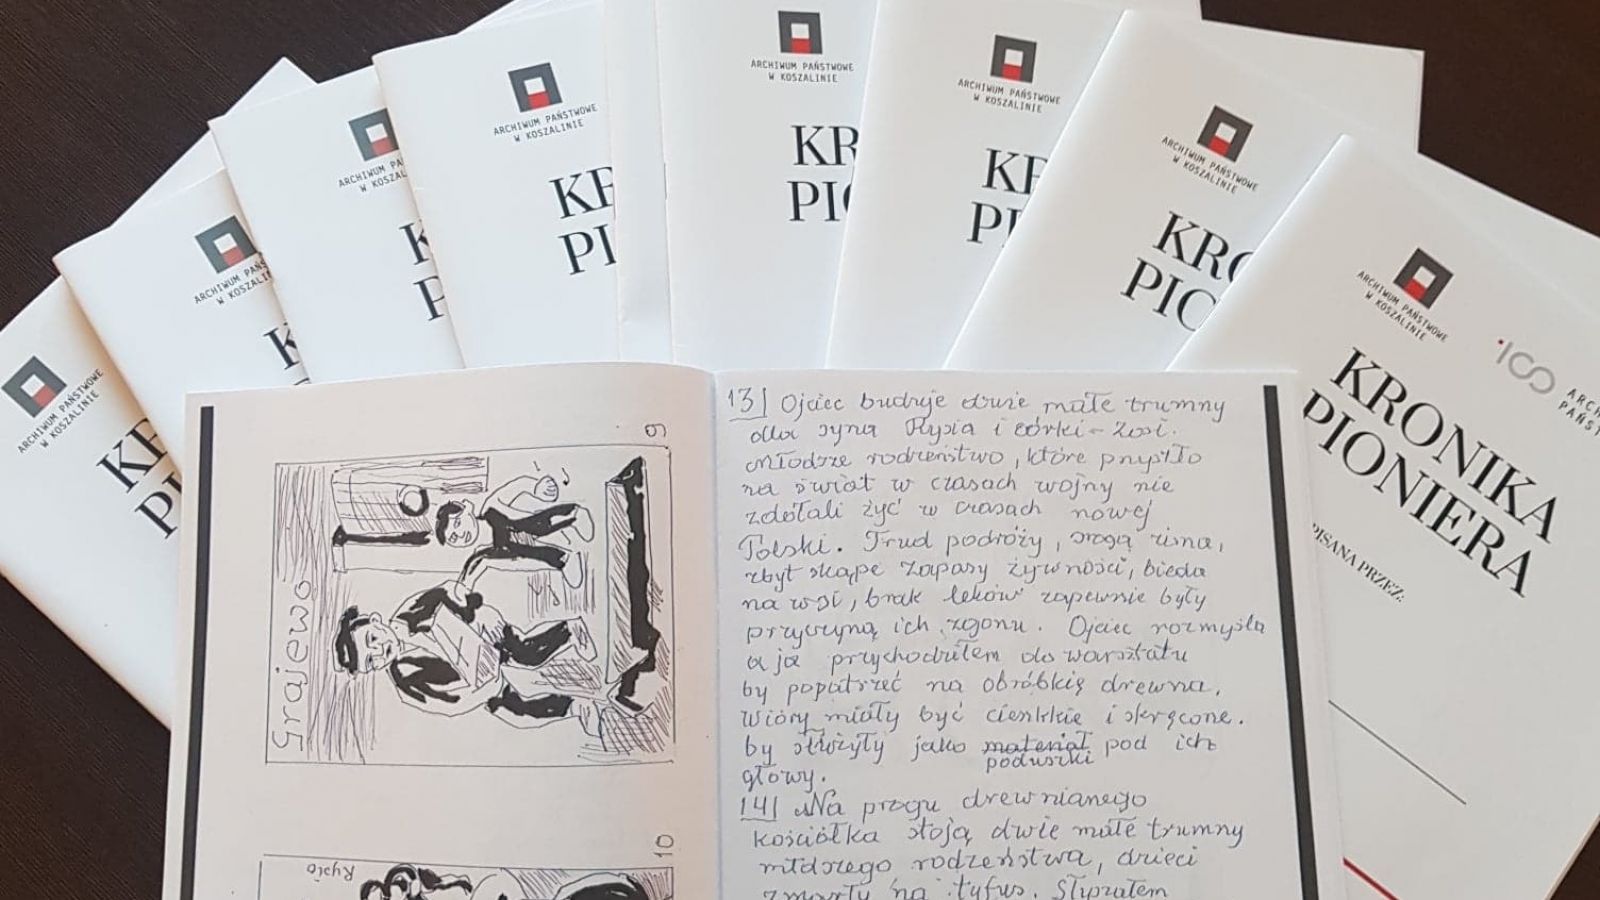 ARCHIWUM PAŃSTWOWE
W KOSZALINIE
KR
PI
ARCHIWUM PAŃS
W KOSZALI
K
ARCHIWUM PA
W KOSZAL
K
P
ARCHIWUM PAŃSTWOWE
W KOSZALINIE
KR
PI
ARCHIWUM PAŃSTWOWE
W KOSZALINIE
KR
PIO
ARCHIWUM PAŃSTWOWE
W KOSZALINIE
KR
PI
ARCHIWUM PAŃSTWOWE
W KOSZALINIE
KRO
PIO
ARCHIWUM PAŃSTWOWE
W KOSZALINIE
100
ARCH
PAŃST
KRONIKA
PIONIERA
PISANA PRZEZ:
9
Grajewo
10
Rysio
13| Ojciec buduje dwie małe trumny
dla syna Rysia i córki - Zosi.
Młodsze rodzeństwo, które przyszło
na świat w czasach wojny nie
zdołali żyć w czasach nowej
Polski. Trud podróży, sroga zima,
zbyt skąpe zapasy żywności, bieda
na wsi, brak leków zapewnie były
przyczyną ich zgonu. Ojciec rozmyśla
a ja przychodziłem do warsztatu
by popatrzeć na obróbkię drewna.
Wióry miały być cienkkie i skręcone.
by służyły jako materiał pod ich
poduszki
głowy.
14| Na progu drewnianego
kościółka stoją dwie małe trumny
młdszego rodzeństwa, dzieci
zmarły na tyfus. Słyszałem